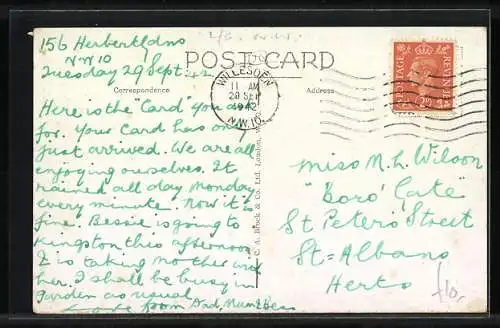 156 Herbert Gdns
N W 10
Tuesday 29 Sept. 42
POST CARD
Correspondence
Address
WILLESDEN
11 AM
29 SEP
1942
N.W.10.
POSTAGE
REVENUE
Here is the "Card you
for. Your Card has
just arrived. We are all
enjoying ourselves. It
rained all day Monday
every minute. Now it is
fine. Bessie is going to
Kingston this afternoon
& is taking mother with
her. I shall be busy in
garden as usual
Love from Dad, Mum & Bess
C. A. Brock & Co. Ltd. London.
Miss M. L. Wilson
"Boro' Gate"
St Peters Street
St Albans
Herts
£10.